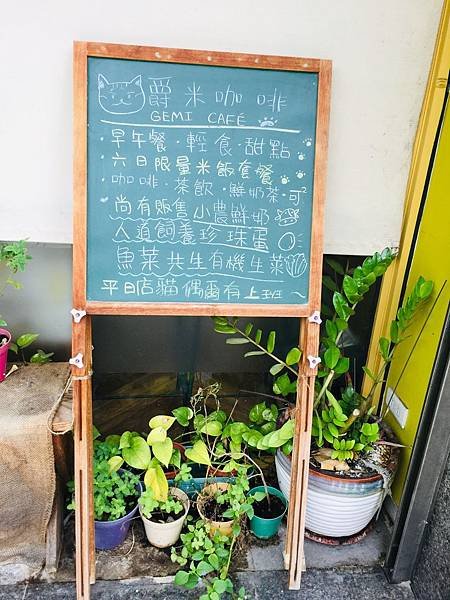 爵米咖啡
GEMI CAFÉ
早午餐·輕食·甜點·
·六日限量米飯套餐·
·咖啡·茶飲·鮮奶茶·可可
尚有販售小農鮮奶
人道飼養珍珠蛋
魚菜共生有機生菜
平日店貓偶爾有上班~